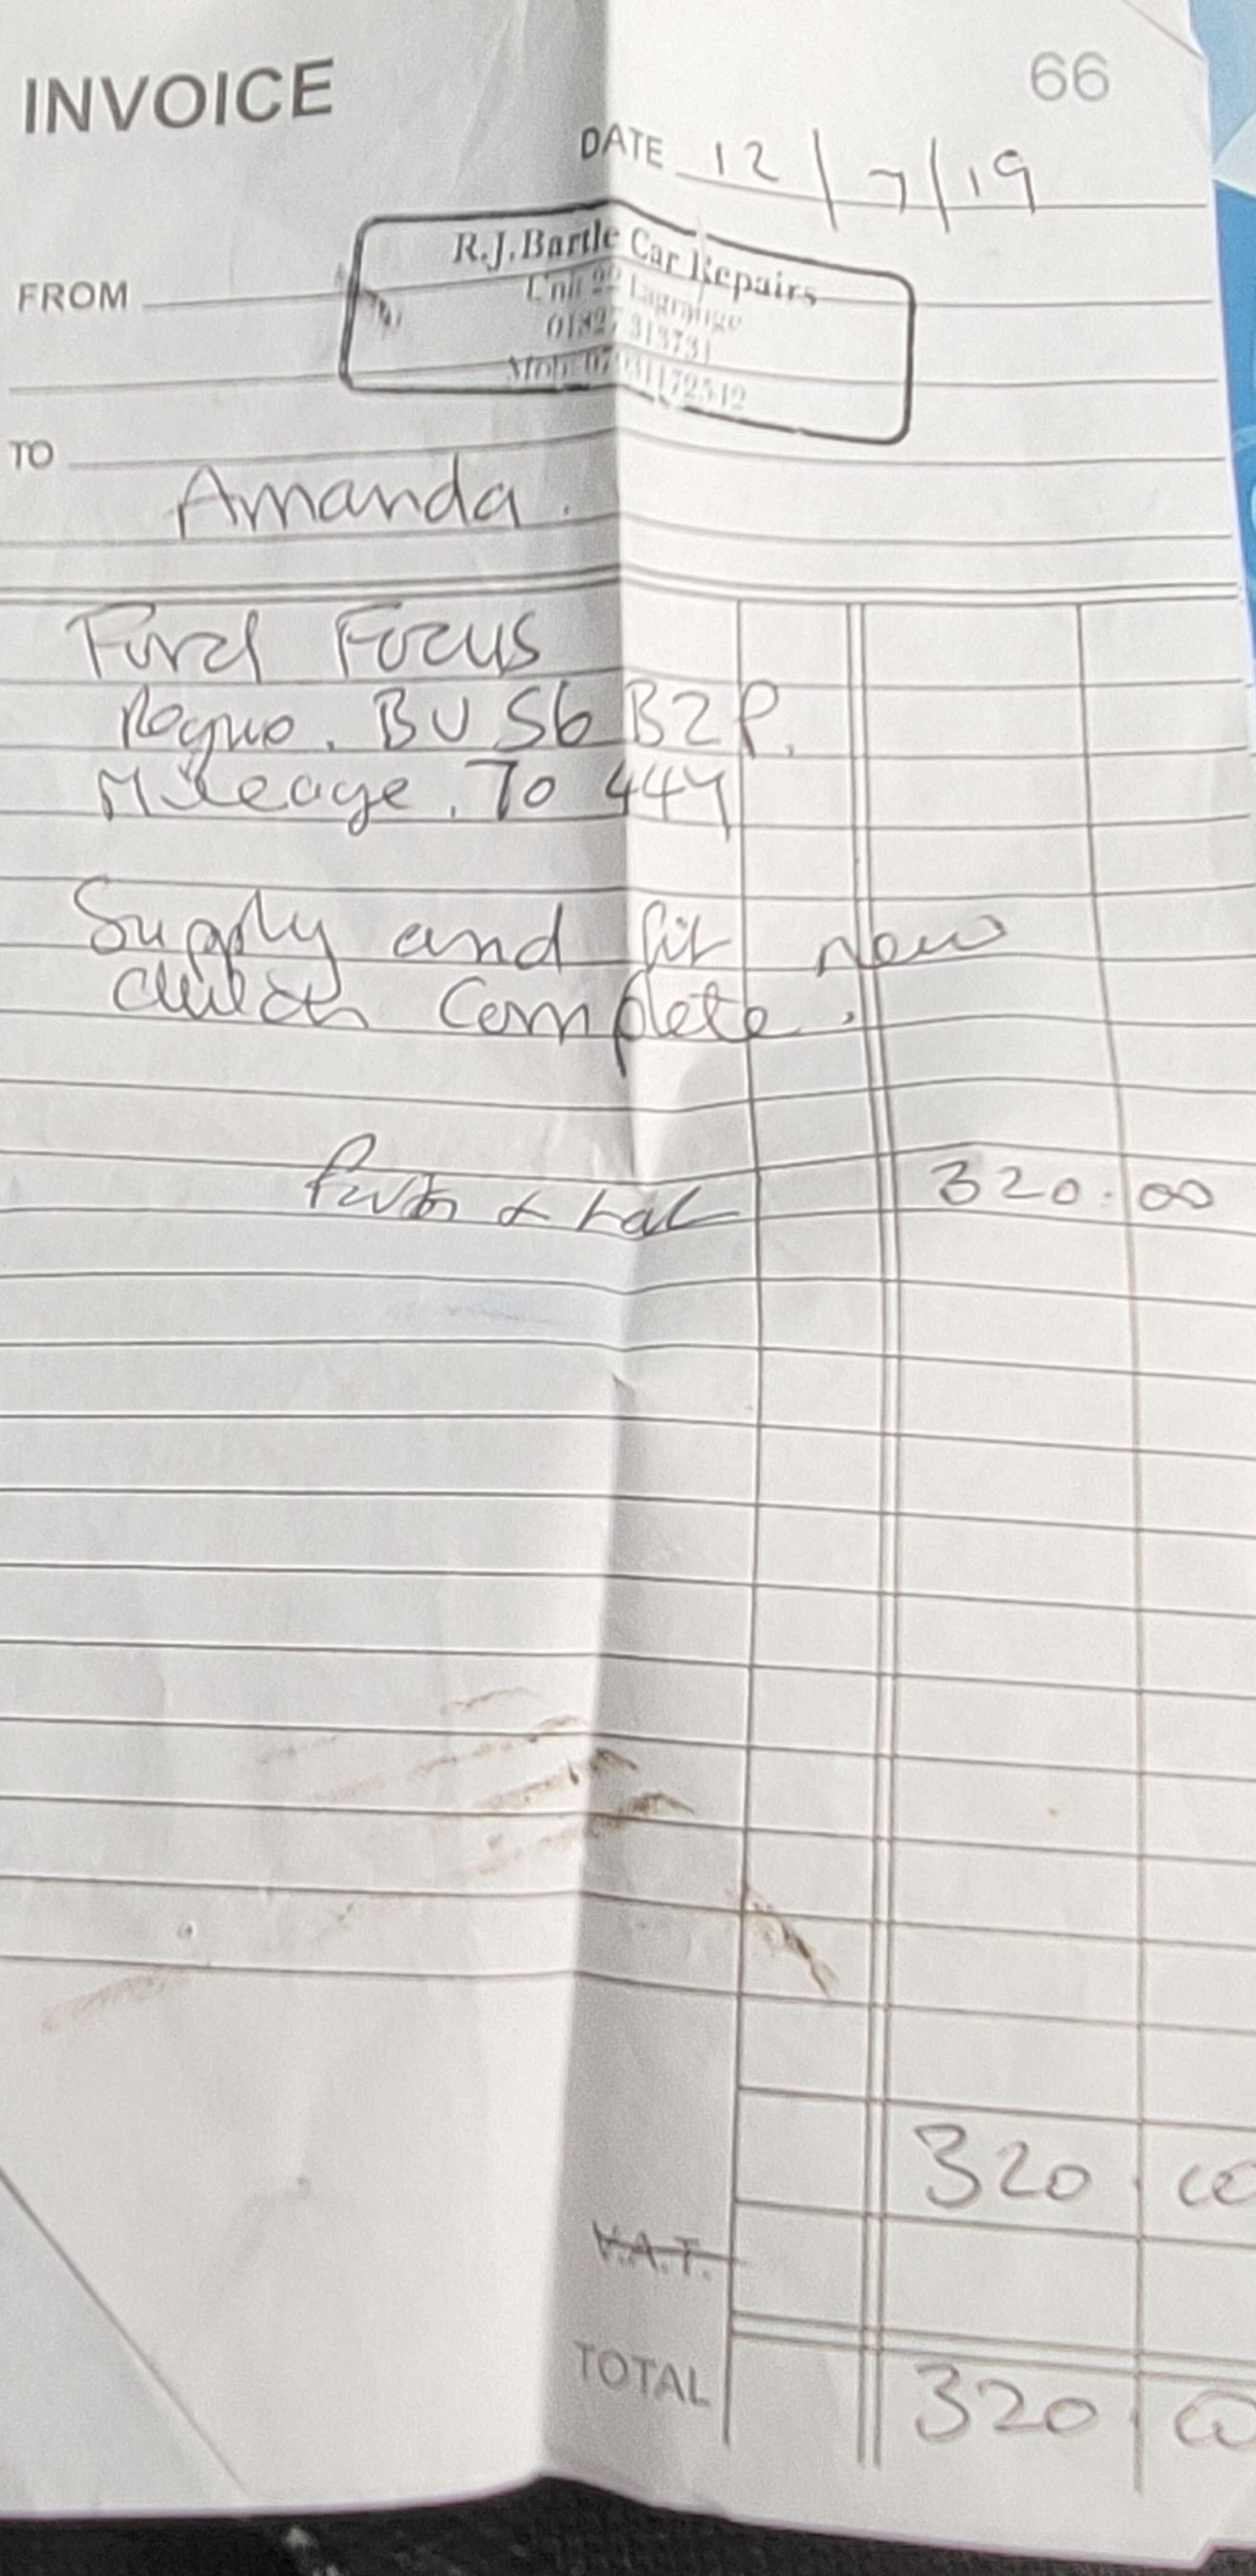 INVOICE
66
DATE 12/7/19
FROM
R.J.Bartle Car Repairs
Unit 22 Lagrange
01827 313731
Mob:
TO
Amanda.
Ford Focus
Regno. BU56 BZP.
Mileage. 70 444
Supply and fit new
Clutch Complete.
Parts & Lab 320.00
320.00
V.A.T.
TOTAL 320.00